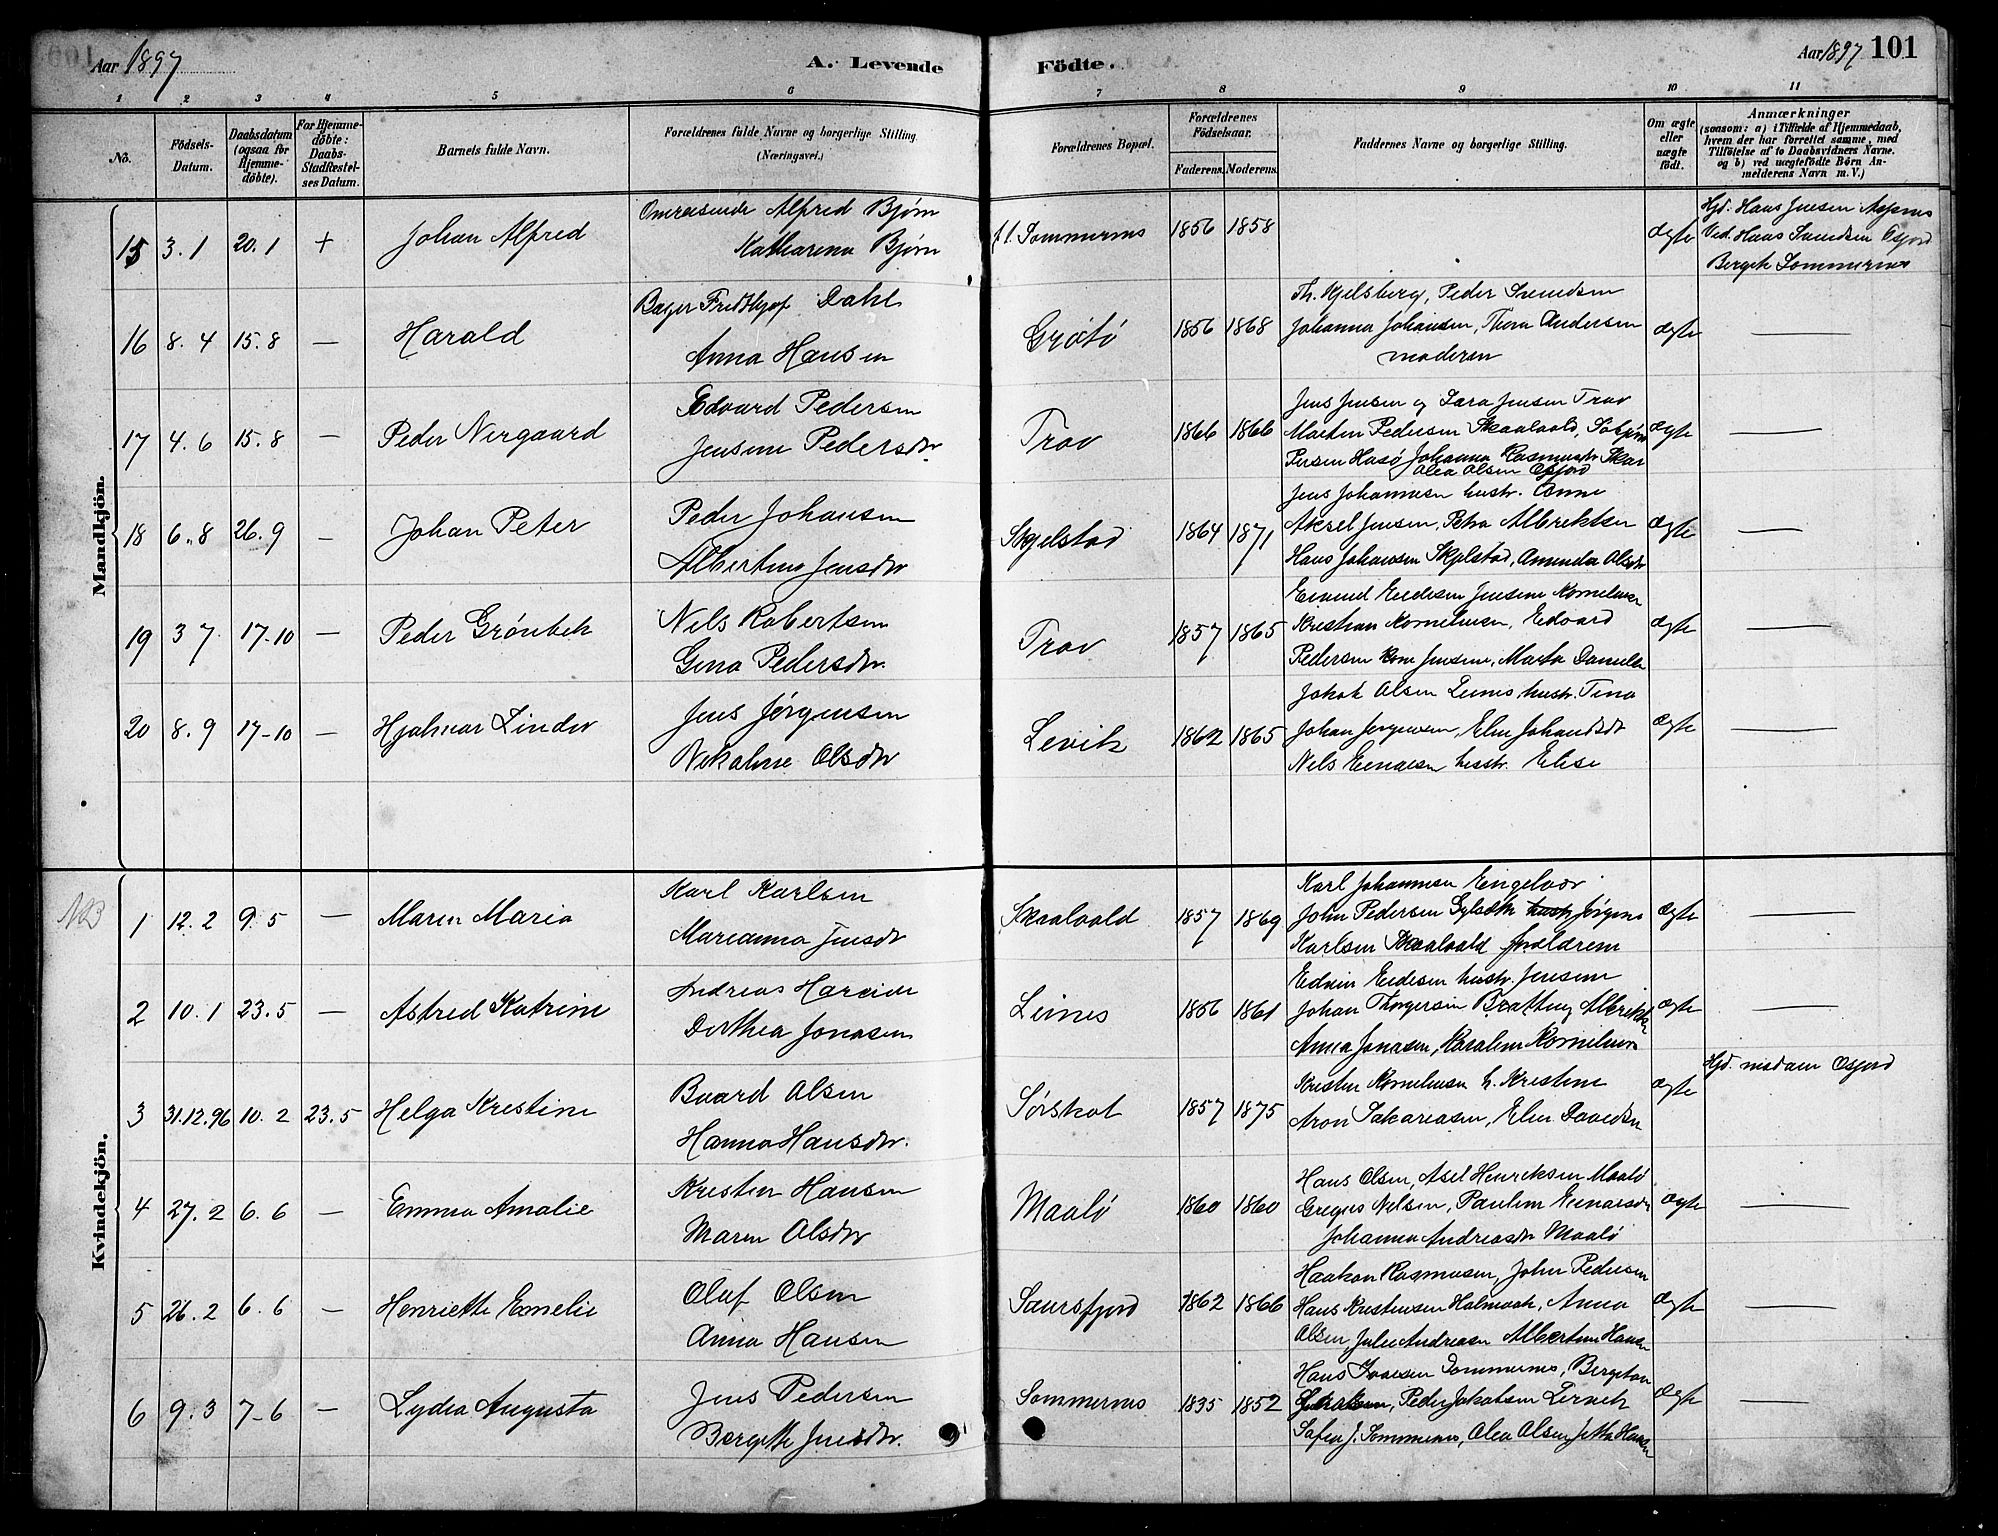 Aar 1897
A. Levende Födte.
Aar 1897 101
1 2 3 4 5 6 7 8 9 10 11
No. Födsels-Datum. Daabsdatum (ogsaa for Hjemmedöbte). For Hjemmedöbte: Daabs-Stadfæstelses Datum. Barnets fulde Navn. Forældrenes fulde Navne og borgerlige Stilling. (Næringsvei.) Forældrenes Bopæl. Forældrenes Födselsaar. Faderens. Moderens. Faddernes Navne og borgerlige Stilling. Om ægte eller uægte födt. Anmærkninger (saasom: a) i Tilfælde af Hjemmedaab, hvem der har forrettet samme, med Tilföielse af to Daabsvidners Navne. og b) ved uægtefödte Børn Anmelderens Navn m. V.)
Mandkjön.
15 3.1 20.1 + Johan Alfred Omreisende Alfred Bjørn Katharina Bjørn f.t. Sommernes 1856 1858 ægte Hjd. Hans Jensen Aspnes
Ved. Hans Svendsen Osfjord
Bergete Sommernes
16 8.4 15.8 — Harald Bager Fredthjof Dahl Anna Hansen Grötö 1856 1868 Th. Kjelsberg, Peder Svendsen
Johanna Johansen, Thora Andersen
moderen ægte —
17 4.6 15.8 — Peder Nergaard Edvard Pedersen Jensine Pedersdtr. Trov 1866 1866 Jens Jensen og Sara Jensen Trov
Martin Pedersen Skaalvold,
Johanna Rasmusdtr Skar
Alea Olsen Osfjord ægte —
18 6.8 26.9 — Johan Peter Peder Johansen Albertine Jensdtr Skjelstad 1864 1871 Jens Johannesen hustr. Anne
Aksel Jensen, Petra Albriktsen
Hans Johansen Skjelstad, Amanda Olsdtr ægte —
19 3 7. 17-10 — Peder Grönbek Nils Robertsen Gina Pedersdtr. Trov 1857 1865 Jensine Kornelius
Kristian Korneliusen, Edvard
Pedersen Kone Jensine, Marta Daniels ægte —
20 8.9 17-10 — Hjalmar Linder Jens Jørgensen Nikoline Olsdtr Levik 1862 1865 Jakob Olsen Leines hustr. Tina
Johan Jørgensen, Elen Johansdtr
Nels Einarsen hustr. Elise ægte —
Kvindekjön.
NB 1 12.2 9.5 — Maren Maria Karl Karlsen Marianna Jensdtr Skaalvold 1857 1869 Karl Johannesen Engelvær
John Pedersen Gylseth Jørgine
Karlsen Skaalvold foreldrene ægte —
2 10.1 23.5 — Astrid Katrine Andreas Hareide Dorthea Jonasen Leines 1856 1861 Edvin Eedesen hustr. Jensine
Johan Thorgersen
Anna Jonasen, Karoline Kornelius ægte —
3 31.12.96 10.2 23.5 Helga Kristine Baard Olsen Hanna Hansdtr. Sørskot 1857 1875 Kristen Korneliusen h. Kristine
Aron Sakariasen, Elen Davidsen ægte Hjd. madam Osfjord
4 27.2 6.6 — Emma Amalie Kristen Hansen Maren Olsdtr Maalö 1860 1860 Hans Olsen, Asel Henriksen Maalö
Gregus Nilsen, Pauline Einarsdtr
Johanna Andreasdtr Maalö ægte —
5 26.2 6.6 — Henriette Emelie Oluf Olsen Anna Hansen Saursfjord 1862 1866 Haakon Rasmusen, John Pedersen
Hans Kristensen Holmaak, Anna
Olsen, Julie Andreasen Albertine Hansen ægte —
6 9.3 7-6 — Lydia Augusta Jens Pedersen Bergitte Jensdtr. Sommernes 1835 1852 Hans Isaksen Sommernes,
Peder Jakobsen Lervik
Sommernes, Alea Olsen, Jetta Hansen ægte —